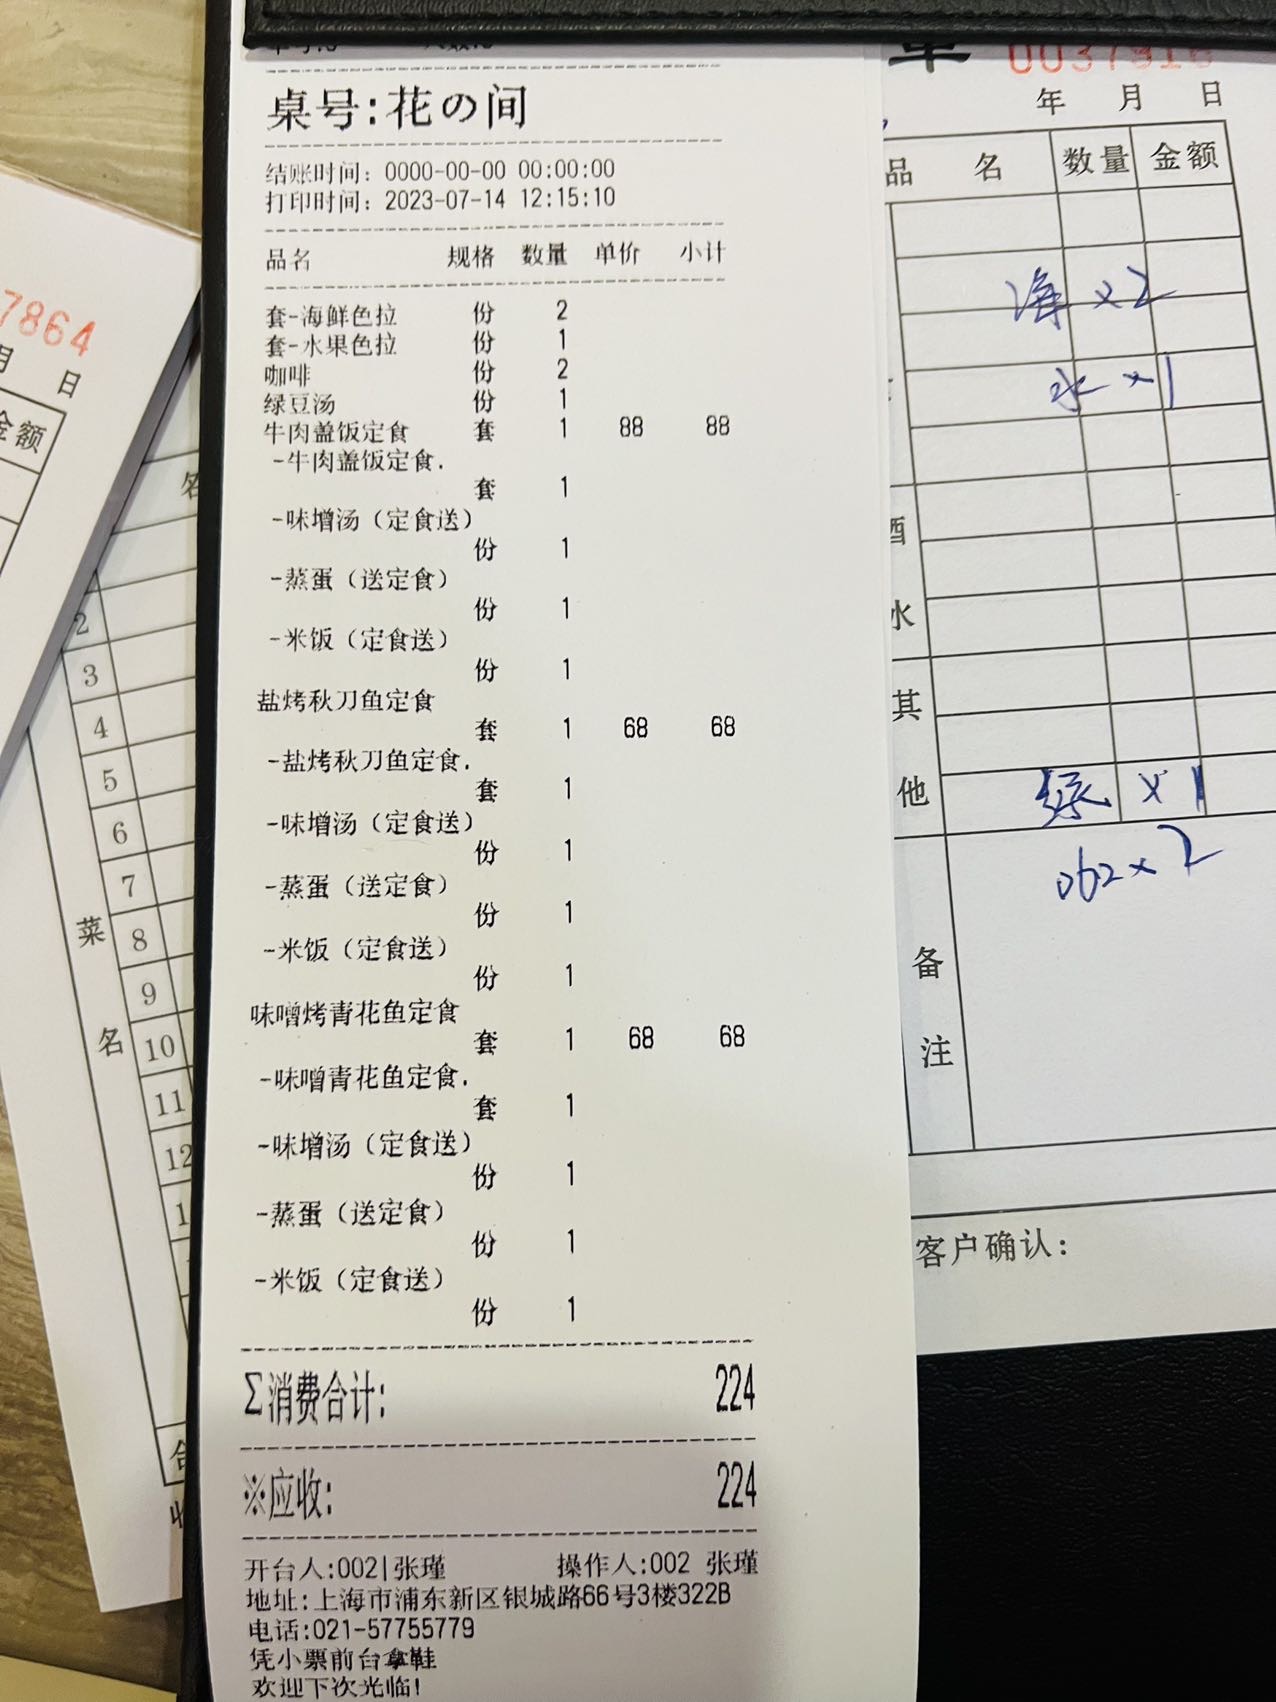 桌号:花の间
结账时间：0000-00-00 00:00:00
打印时间：2023-07-14 12:15:10
品名 规格 数量 单价 小计
套-海鲜色拉 份 2
套-水果色拉 份 1
咖啡 份 2
绿豆汤 份 1
牛肉盖饭定食 套 1 88 88
-牛肉盖饭定食.
套 1
-味增汤（定食送）
份 1
-蒸蛋（送定食）
份 1
-米饭（定食送）
份 1
盐烤秋刀鱼定食
套 1 68 68
-盐烤秋刀鱼定食.
套 1
-味增汤（定食送）
份 1
-蒸蛋（送定食）
份 1
-米饭（定食送）
份 1
味噌烤青花鱼定食
套 1 68 68
-味噌青花鱼定食.
套 1
-味增汤（定食送）
份 1
-蒸蛋（送定食）
份 1
-米饭（定食送）
份 1
Σ消费合计: 224
※应收: 224
开台人:002|张瑾 操作人:002 张瑾
地址:上海市浦东新区银城路66号3楼322B
电话:021-57755779
凭小票前台拿鞋
欢迎下次光临!
单 0037916
年 月 日
品 名 数量 金额
海 x2
水 x1
酒
水
其
他
绿 x1
x2
备
注
客户确认:
7864
月 日
金额
名
2
3
4
5
6
7
8
9
10
11
12
菜
名